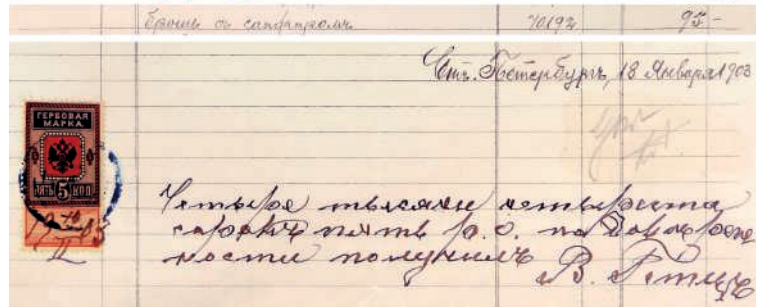 Брошь съ сапфиромъ 70192 95 -
Снт. Петербургъ, 18 Января 1903
ГЕРБОВАЯ
МАРКА
ПЯТЬ 5 КОП
19 10/II 03
Четыре тысячи четыреста
сорокъ пять р. с. по доверен
ности получилъ